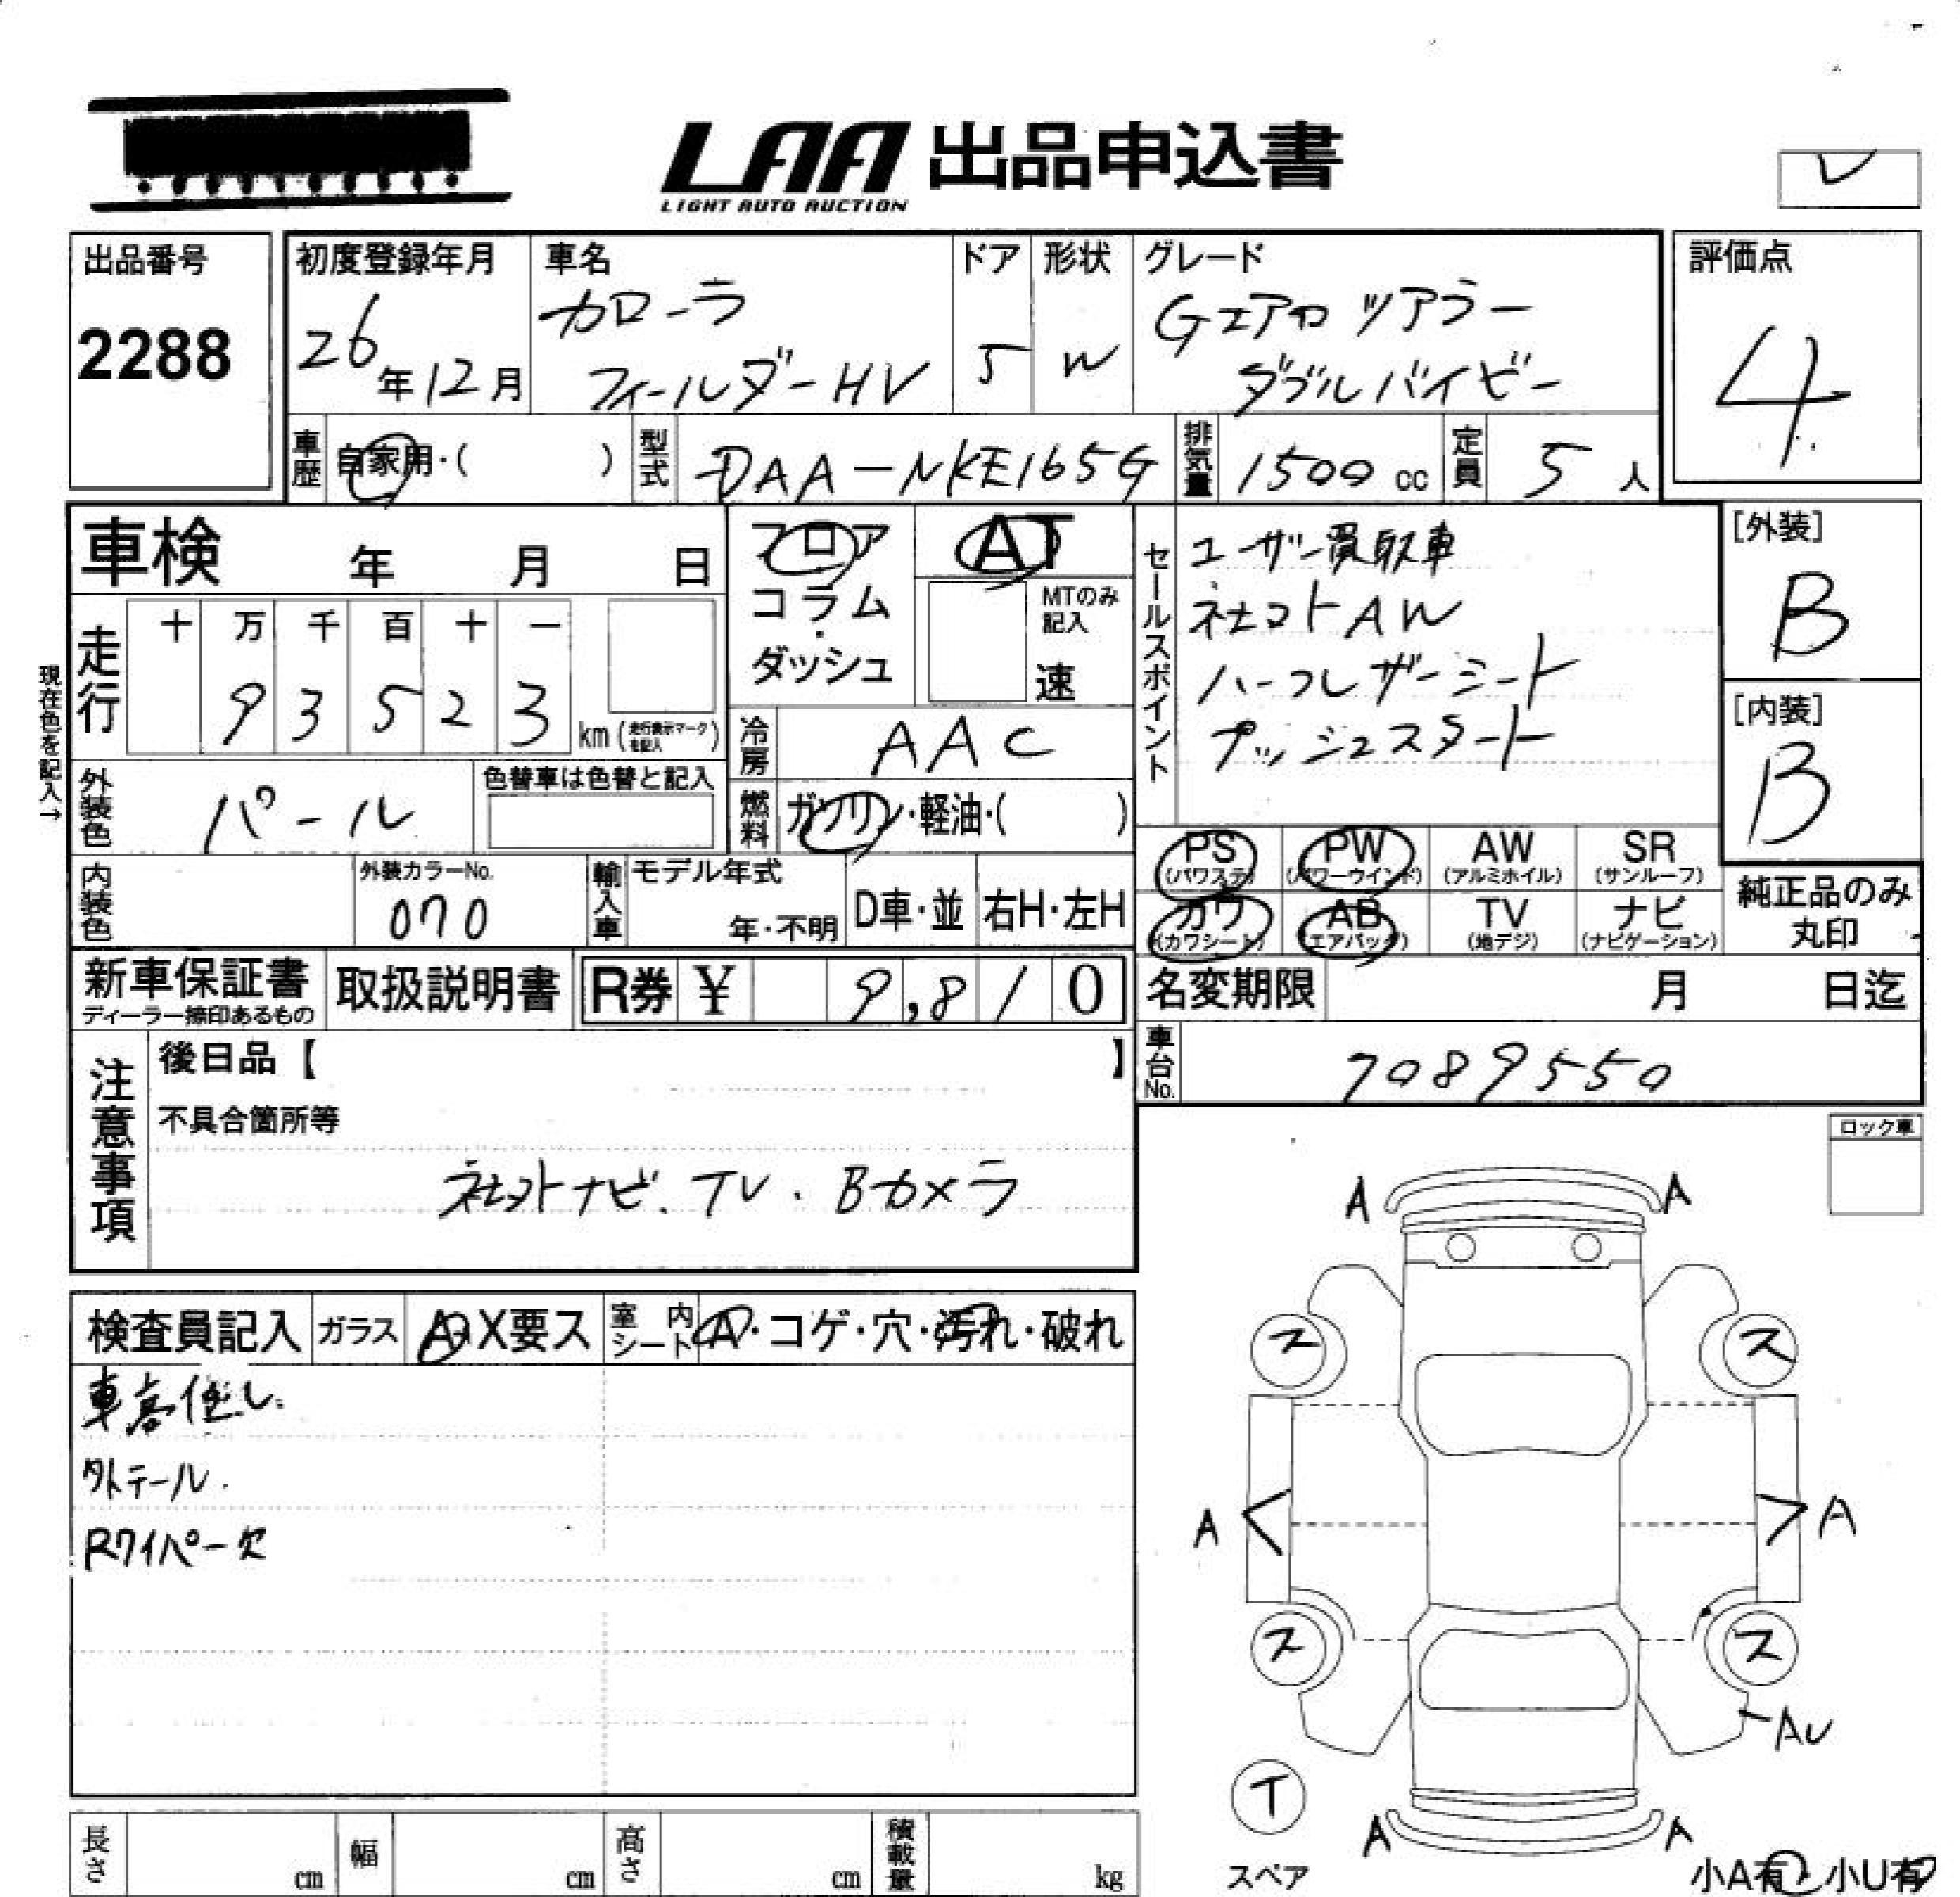 LAA 出品申込書
LIGHT AUTO AUCTION
レ
出品番号
2288
初度登録年月
26年12月
車名
カローラ
フィールダーHV
ドア
5
形状
W
グレード
Gエアロツアラー
ダブルバイビー
評価点
4
車歴 自家用・( )
型式 DAA-NKE165G
排気量 1500cc
定員 5人
車検 年 月 日
フロア
コラム
・
ダッシュ
AT
MTのみ
記入
速
走行 十 万 千 百 十 一
9 3 5 2 3 km(走行表示マークを記入)
現在色を記入→
冷房 AAC
外装色 パール
色替車は色替と記入
燃料 ガソリン・軽油・( )
内装色
外装カラーNo.
070
輸入車 モデル年式
年・不明
D車・並 右H・左H
セールスポイント
ユーザー買取車
社外AW
ハーフレザーシート
プッシュスタート
[外装]
B
[内装]
B
PS PW AW SR
(パワステ) (パワーウインド) (アルミホイル) (サンルーフ)
カワ AB TV ナビ
(カワシート) (エアバッグ) (地デジ) (ナビゲーション)
純正品のみ
丸印
新車保証書
ディーラー捺印あるもの
取扱説明書
R券 ¥ 9,810
名変期限 月 日迄
車台No. 7089550
注意事項
後日品【 】
不具合箇所等
社外ナビ、TV、Bカメラ
ロック車
検査員記入 ガラス A・X要ス 室内シート A・コゲ・穴・汚れ・破れ
車高低し
外テール
Rワイパー欠
A A
ス ス
A A
ス ス
AU
T
スペア
A A
小A有・小U有
長さ cm 幅 cm 高さ cm 積載量 kg